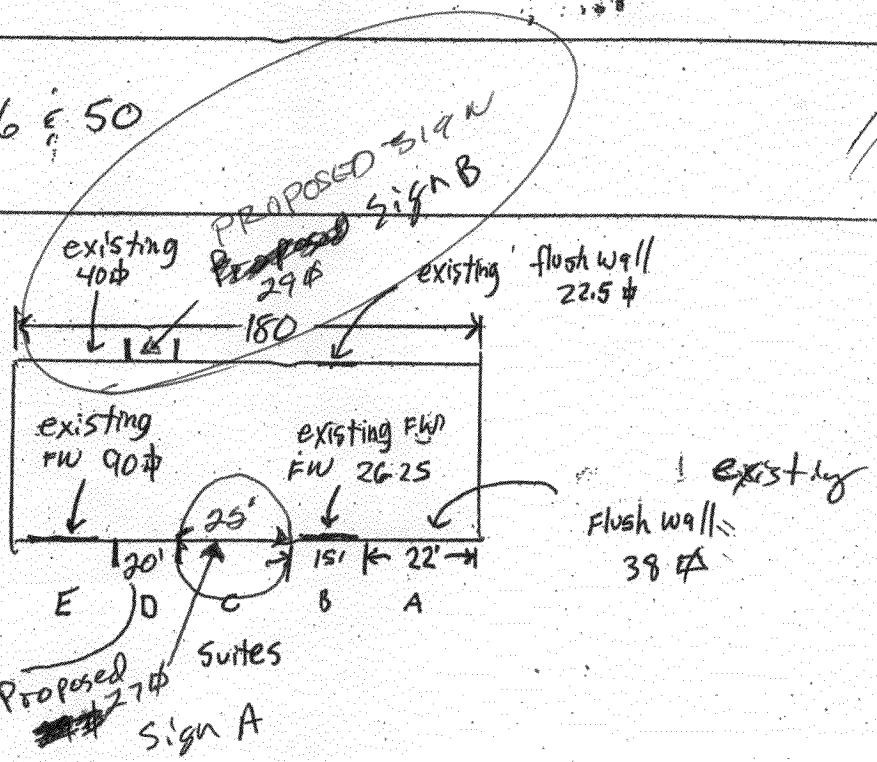 & 50
PROPOSED SIGN
Sign B
existing
40⌀
Proposed
29⌀
existing flush wall
22.5⌀
180
existing
FW 90⌀
existing FW
FW 26.25
existing
Flush wall
38⌀
25'
20'
15'
22'
E D C B A
Suites
Proposed
27⌀
Sign A